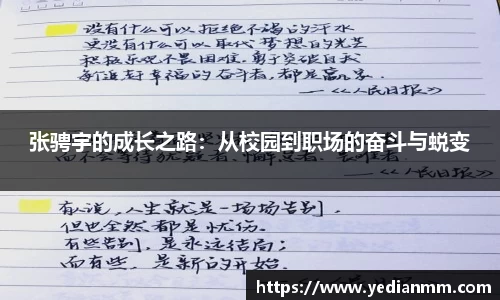 没有什么可以拒绝不竭的汗水
更没有什么可以取代梦想的光芒
积极乐观不畏困难,勇于突破自我
新追赶幸福的奋斗者,都是赢家.
—《人民日报》
张骋宇的成长之路：从校园到职场的奋斗与蜕变
—《人民日报》
有人说,人生就是一场场告别,
但也全然都是忧伤。
有些告别,是永远结局;
而有些,是新的开始.
https://www.yedianmm.com